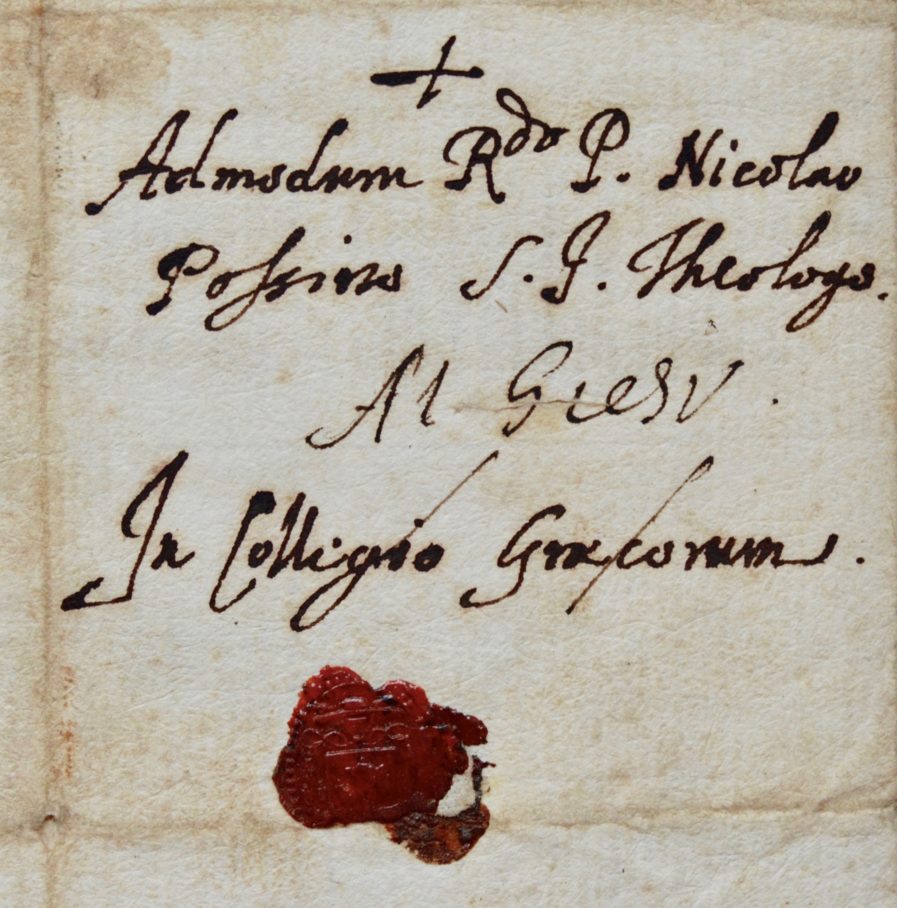 +
Admodum Rdo P. Nicolao
Possino S. J. Theologo.
Al Giesu .
In Collegio Græcorum .